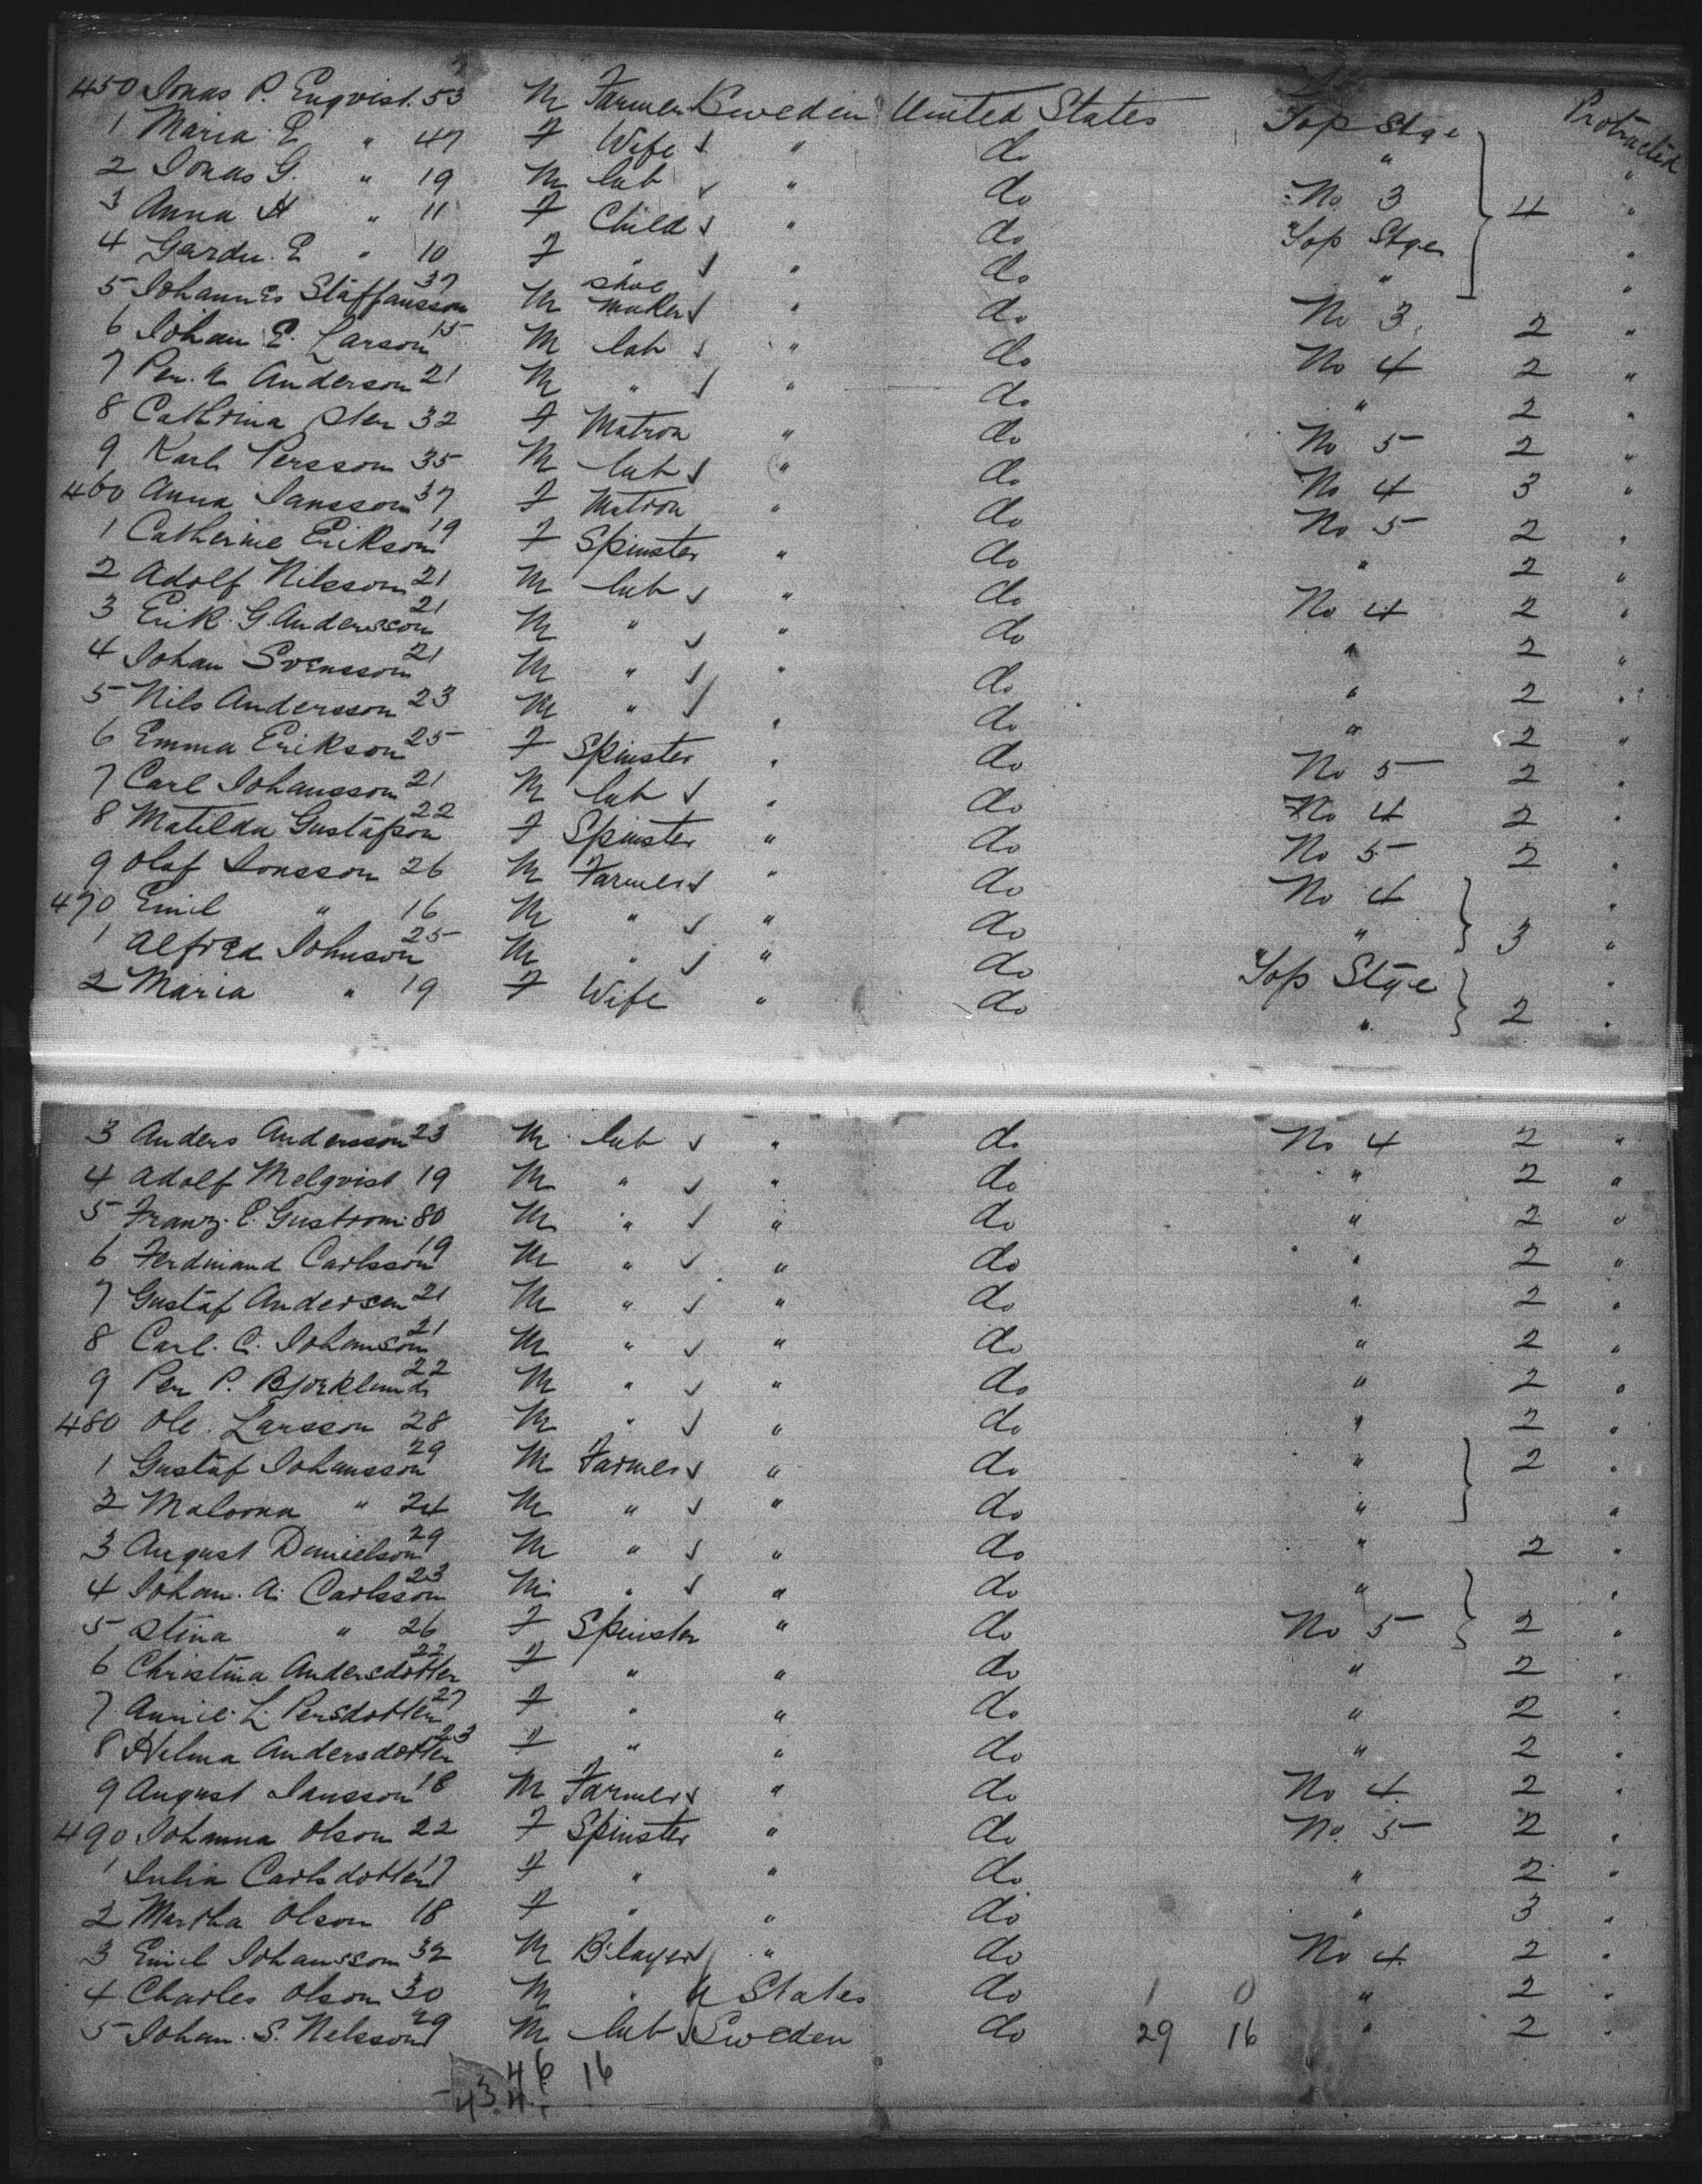 450 Jonas P. Enqvist. 53 M Farmer Sweden United States Top Stge Protracted
1 Maria E " 47 F Wife " do "
2 Jonas G. " 19 M lab " do No 3 4 "
3 Anna H " 11 F Child " do Top Stge "
4 E " 10 F " " do " "
5 Johannes Staffansson 37 M shoe maker " do No 3 2 "
6 Johan E. Larson 15 M lab " do No 4 2 "
7 Per. A Anderson 21 M " " do " 2 "
8 Cathrina Sten 32 F Matron " do No 5 2 "
9 Karl Persson 35 M lab " do No 4 3 "
460 Anna Jansson 37 F Matron " do No 5 2 "
1 Catherine Erikson 19 F Spinster " do " 2 "
2 Adolf Nilsson 21 M lab " do No 4 2 "
3 Erik. G. Andersson 21 M " " do " 2 "
4 Johan Svensson 21 M " " do " 2 "
5 Nils Andersson 23 M " " do " 2 "
6 Emma Erikson 25 F Spinster " do No 5 2 "
7 Carl Johansson 21 M lab " do No 4 2 "
8 Matilda Gustafson 22 F Spinster " do No 5 2 "
9 Olof Jonsson 26 M Farmer " do No 4 "
470 Emil " 16 M " " do " 3 "
1 Alfred Johnson 25 M " " do Top Stge "
2 Maria " 19 F Wife " do " 2 "
3 Anders Andersson 23 M lab " do No 4 2 "
4 Adolf Melqvist 19 M " " do " 2 "
5 Franz. E. Gustrom 80 M " " do " 2 "
6 Ferdinand Carlsson 19 M " " do " 2 "
7 Gustaf Andersen 21 M " " do " 2 "
8 Carl. C. Johanson 21 M " " do " 2 "
9 Per P. Bjorklund 22 M " " do " 2 "
480 Ole. Larsson 28 M " " do " 2 "
1 Gustaf Johansson 29 M Farmer " do " 2 "
2 " 24 M " " do " "
3 August Danielson 29 M " " do " 2 "
4 Johan. A. Carlsson 23 M " " do " "
5 Stina " 26 F Spinster " do No 5 2 "
6 Christina Andersdotter 22 F " " do " 2 "
7 Annie. L. Persdotter 27 F " " do " 2 "
8 Hilma Andersdotter 23 F " " do " 2 "
9 August Jansson 18 M Farmer " do No 4 2 "
490 Johanna Olson 22 F Spinster " do No. 5 2 "
1 Julia Carlsdotter 17 F " " do " 2 "
2 Martha Olson 18 F " " do " 3 "
3 Emil Johansson 32 M B. layer " do No 4 2 "
4 Charles Olson 30 M " U States do 1 0 " 2 "
5 Johan. S. Nelsson 29 M lab Sweden do 29 16 " 2 "
46 16